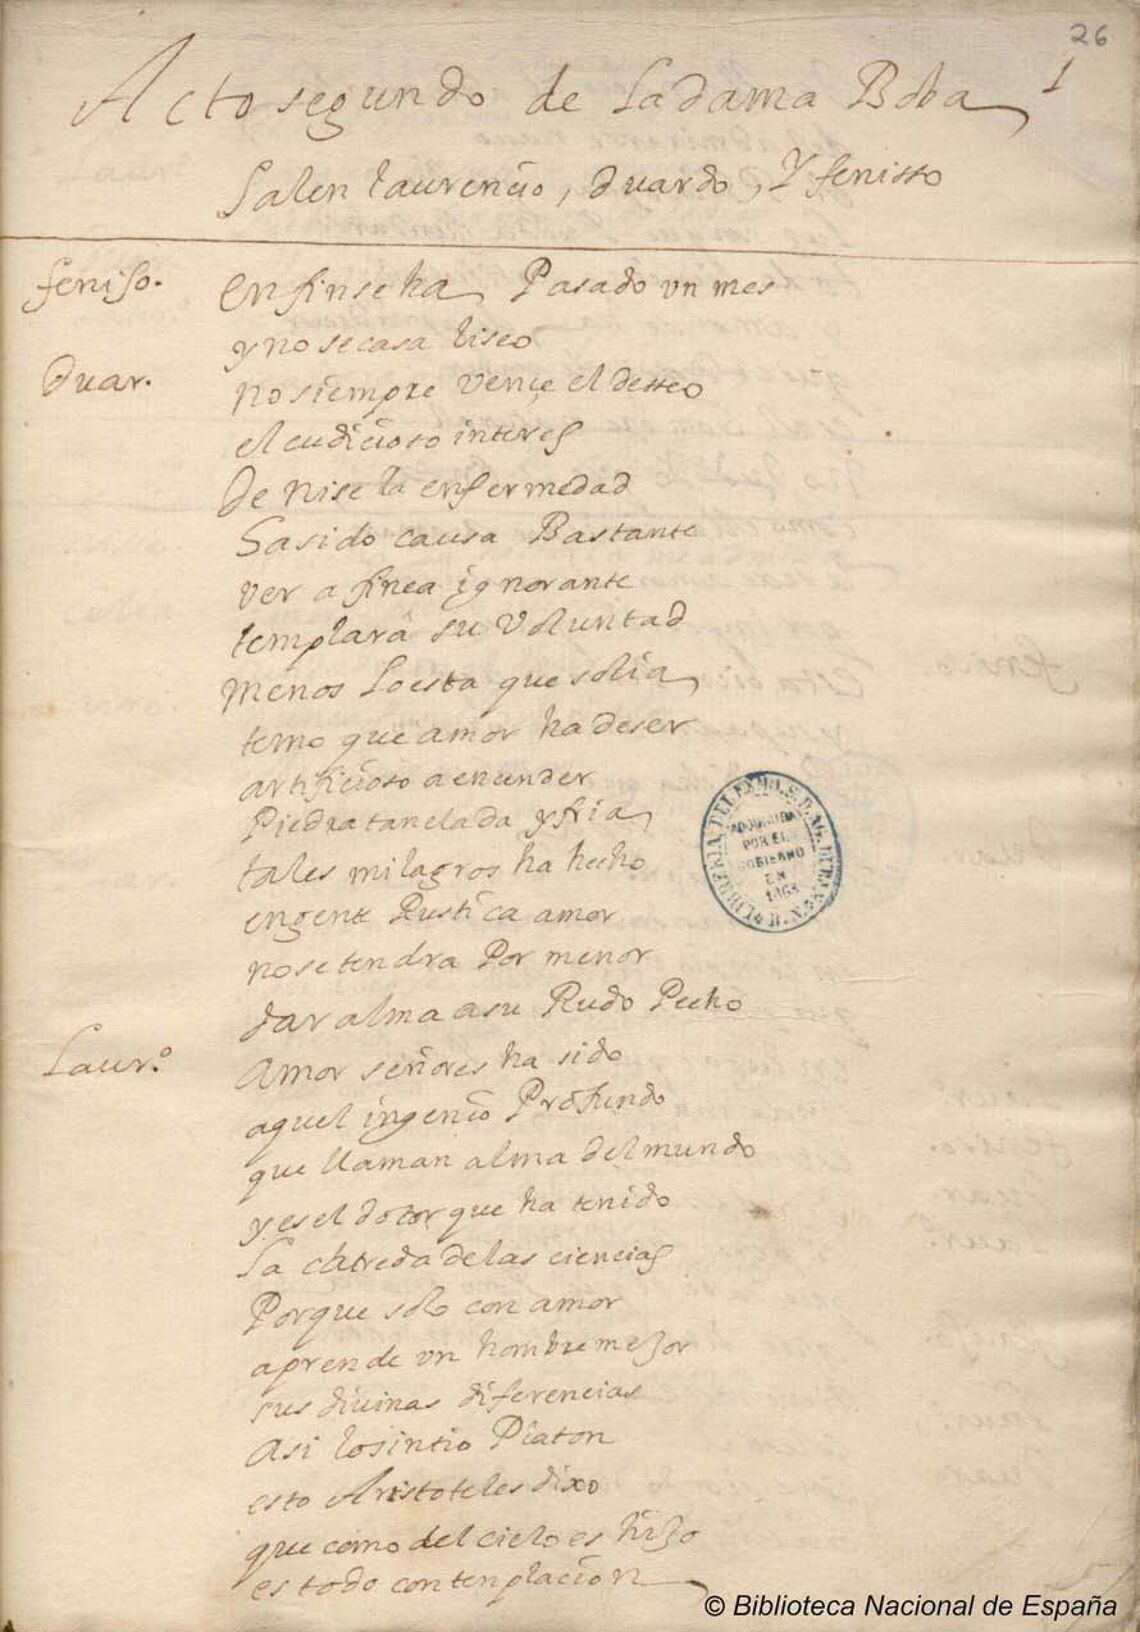 26
1
Acto segundo de la dama Boba
Salen laurençio, duardo, y fenisso
feniso. En fin se ha Pasado vn mes
y no se casa liseo
Duar. no siempre vençe el desseo
el cudiçioso interes
De nise la enfermedad
ha sido causa Bastante
ver a finea ignorante
templarâ su voluntad
menos lo esta que solia
temo que amor ha de ser
artifiçioso a encender
Piedra tan elada y fria
tales milagros ha hecho
en gente Rustica amor
no se tendra Por menor
dar alma a su Rudo Pecho
Laur.º Amor señores ha sido
aquel ingenio Profundo
que llaman alma del mundo
y es el dotor que ha tenido
la catreda de las ciencias
Porque solo con amor
aprende vn hombre mejor
sus diuinas diferencias
Asi lo sintio Platon
esto Aristoteles dixo
que como del cielo es hijo
es todo contemplacion
LIBRERIA DEL EXMO. S. D. AG. DURAN. B. N.
ADQUIRIDA
POR EL
GOBIERNO
EN
1863
© Biblioteca Nacional de España